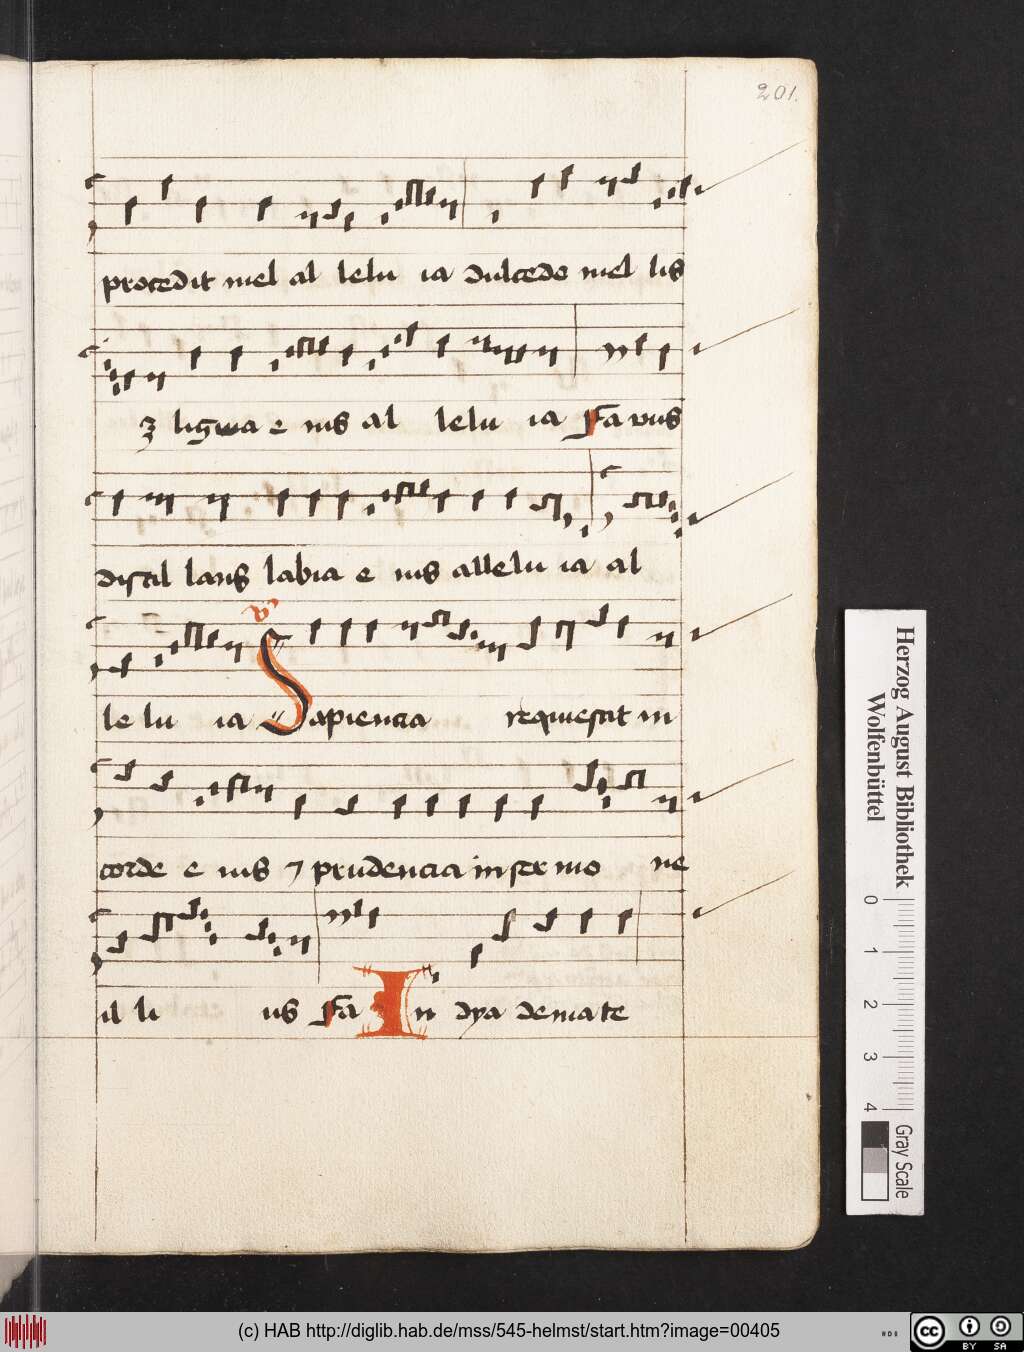 201.
procedit mel al lelu ia dulcedo mel lis
ʒ ligwa e ius al lelu ia Fa vus
distil lans labia e ius allelu ia al
le lu ia Sapiencia requiescit in
corde e ius ⁊ prudencia in ser mo ne
il li us Fa In dya demate
Herzog August Bibliothek
Wolfenbüttel
0 1 2 3 4
Gray Scale
(c) HAB http://diglib.hab.de/mss/545-helmst/start.htm?image=00405
cc
BY SA